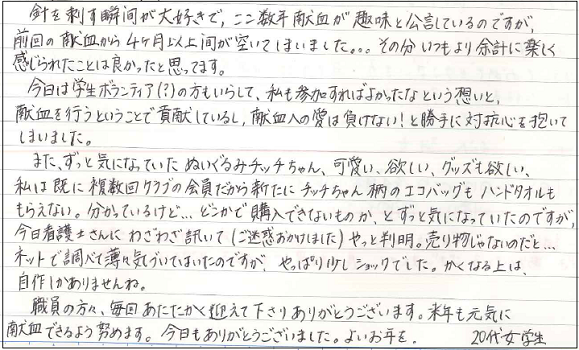 針を刺す瞬間が大好きで、ここ数年献血が趣味と公言しているのですが、
前回の献血から4ヶ月以上間が空いてしまいました。。。その分いつもより余計に楽しく
感じられたことは良かったと思ってます。
今日は学生ボランティア(?)の方もいらして、私も参加すればよかったなという想いと、
献血を行うということで貢献しているし、献血への愛は負けない!と勝手に対抗心を抱いて
しまいました。
また、ずっと気になっていたぬいぐるみチッチちゃん、可愛い、欲しい、グッズも欲しい、
私は既に複数回クラブの会員だから新たにチッチちゃん柄のエコバッグもハンドタオルも
もらえない。分かっているけど…どこかで購入できないものか、とずっと気になっていたのですが、
今日看護士さんにわざわざ訊いて(ご迷惑おかけしました)やっと判明。売り物じゃないのだと…
ネットで調べて薄々気づいてはいたのですが、やっぱり少しショックでした。かくなる上は、
自作しかありませんね。
職員の方々、毎回あたたかく迎えて下さりありがとうございます。来年も元気に
献血できるよう努めます。今日もありがとうございました。よいお年を。 20代女学生